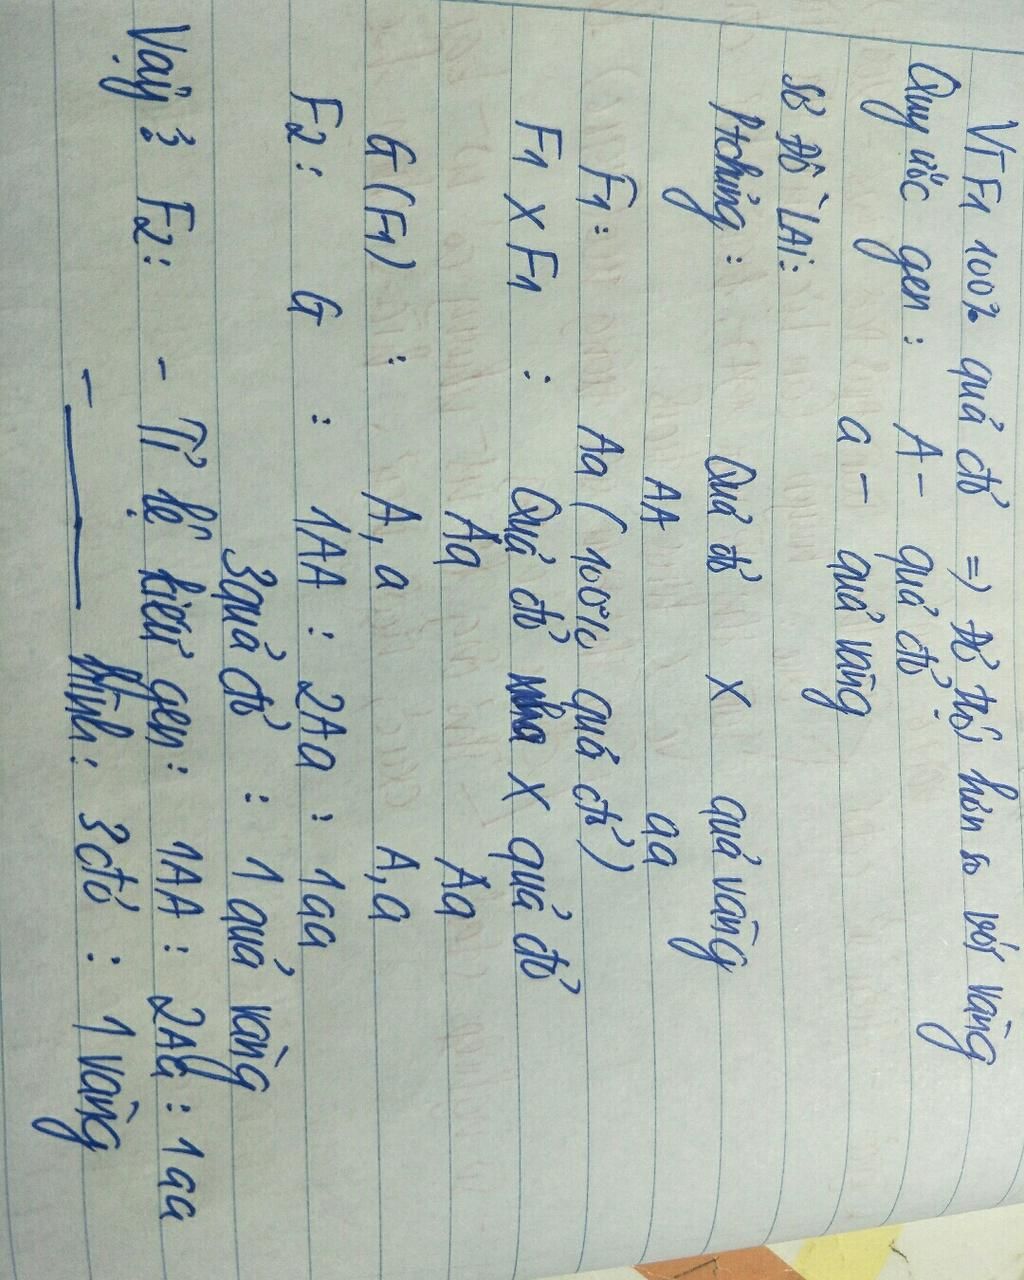 Vì F1 100% quả đỏ => Đỏ trội hơn so với vàng
Quy ước gen : A - quả đỏ.
a - quả vàng
Sơ ĐỒ LAi:
Ptchủng : Quả đỏ X quả vàng
AA aa
F1: Aa ( 100% quả đỏ )
F1 X F1 : Quả đỏ X quả đỏ
Aa Aa
G (F1) : A, a A, a
F2: G : 1AA : 2Aa : 1aa
3 quả đỏ : 1 quả vàng
Vậy : F2: - Tỉ lệ kiểu gen: 1AA : 2Aa : 1aa
- hình: 3 đỏ : 1 vàng